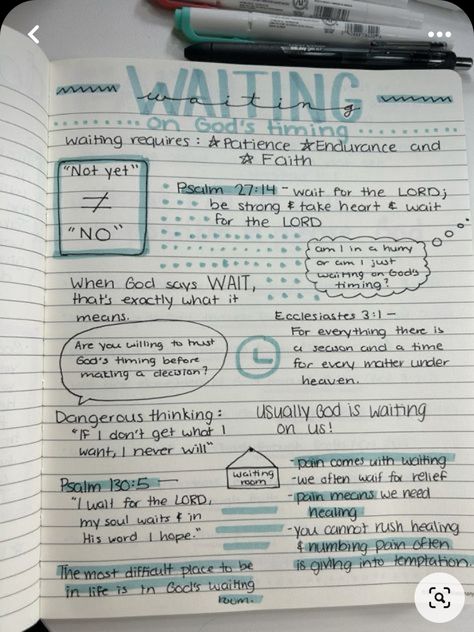 WAITING
waiting
on God's timing
waiting requires: ☆Patience ☆Endurance and
☆ Faith
"Not yet"
≠
"NO"
Psalm 27:14 - wait for the LORD;
be strong & take heart & wait
for the LORD
am I in a hurry
or am I just
waiting on God's
timing?
When God says WAIT,
that's exactly what it
means.
Ecclesiastes 3:1 –
For everything there is
a season and a time
for every matter under
heaven.
Are you willing to trust
God's timing before
making a decision?
Dangerous thinking:
"If I don't get what I
want, I never will"
usually God is waiting
on us!
waiting
room
Psalm 130:5 —
"I wait for the LORD,
my soul waits & in
His word I hope."
- pain comes with waiting
- we often wait for relief
- pain means we need
healing
- you cannot rush healing
& numbing pain often
is giving into temptation.
The most difficult place to be
in life is in God's waiting
room.